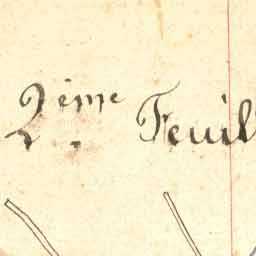 2ème Feuil